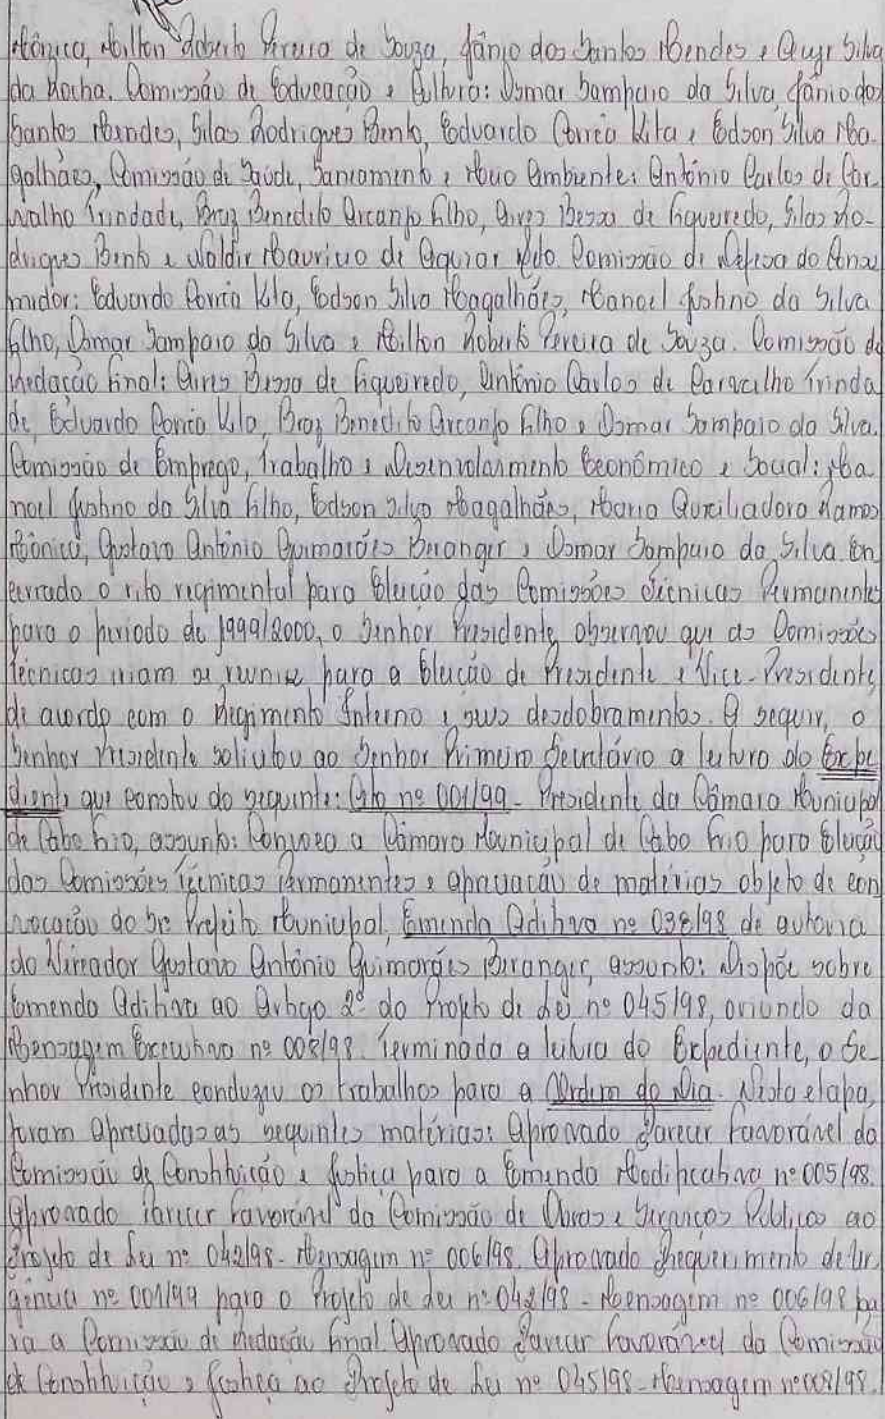 Mônica, Milton Roberto Pereira de Souza, Jânio dos Santos Mendes e Quyr Silva
da Rocha. Comissão de Educação e Cultura: Osmar Sampaio da Silva, Jânio dos
Santos Mendes, Silas Rodrigues Bento, Eduardo Corrêa Kita e Edson Silva Ma-
galhães, Comissão de Saúde, Saneamento e Meio Ambiente: Antônio Carlos de Car-
valho Trindade, Braz Benedito Arcanjo Filho, Aires Bessa de Figueiredo, Silas Ro-
drigues Bento e Waldir Maurício de Aguiar Neto. Comissão de Defesa do Consu
midor: Eduardo Corrêa Kita, Edson Silva Magalhães, Manoel Justino da Silva
Filho, Osmar Sampaio da Silva e Milton Roberto Pereira de Souza. Comissão de
Redação Final: Aires Bessa de Figueiredo, Antônio Carlos de Carvalho Trinda
de, Eduardo Corrêa Kita, Braz Benedito Arcanjo Filho e Osmar Sampaio da Silva.
Comissão de Emprego, Trabalho e Desenvolvimento Econômico e Social: Ma
noel Justino da Silva Filho, Edson Silva Magalhães, Maria Auxiliadora Ramos
Mônica, Gustavo Antônio Guimarães Beranger e Osmar Sampaio da Silva. En
cerrado o rito regimental para Eleição das Comissões Técnicas Permanentes
para o período de 1999/2000, o Senhor Presidente observou que as Comissões
Técnicas iriam se reunir para a Eleição de Presidente e Vice-Presidente,
de acordo com o Regimento Interno e seus desdobramentos. A seguir, o
Senhor Presidente solicitou ao Senhor Primeiro Secretário a leitura do Expe
diente que constou do seguinte: Ato nº 001/99 - Presidente da Câmara Municipal
de Cabo Frio, assunto: Convoca a Câmara Municipal de Cabo Frio para Eleição
das Comissões Técnicas Permanentes e apreciação de matérias objeto de con
vocação do Sr. Prefeito Municipal, Emenda Aditiva nº 038/98 de autoria
do Vereador Gustavo Antônio Guimarães Beranger, assunto: Dispõe sobre
Emenda Aditiva ao Artigo 2º do Projeto de Lei nº 045/98, oriundo da
Mensagem Executiva nº 008/98. Terminada a leitura do Expediente, o Se-
nhor Presidente conduziu os trabalhos para a Ordem do Dia. Nesta etapa,
foram apreciadas as seguintes matérias: Aprovado Parecer Favorável da
Comissão de Constituição e Justiça para a Emenda Modificativa nº 005/98.
Aprovado Parecer Favorável da Comissão de Obras e Serviços Públicos ao
Projeto de Lei nº 042/98 - Mensagem nº 006/98. Aprovado Requerimento de Ur
gência nº 001/99 para o Projeto de Lei nº 042/98 - Mensagem nº 006/98 pa
ra a Comissão de Redação Final. Aprovado Parecer Favorável da Comissão
de Constituição e Justiça ao Projeto de Lei nº 045/98 - Mensagem nº 008/98.